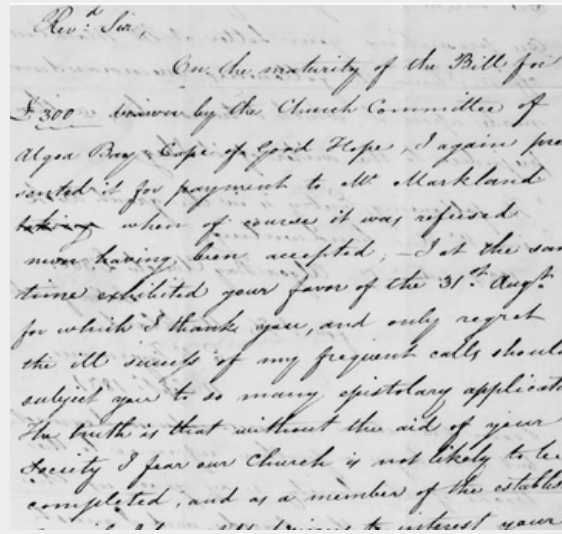 Revd. Sir
On the maturity of the Bill for
£300 drawn by the Church Committee of
Algoa Bay Cape of Good Hope, I again pre
sented it for payment to Mr Markland
taking when of course it was refused
never having been accepted; – I at the sam
time exhibited your favor of the 31st. Augt.
for which I thank you, and only regret
the ill success of my frequent calls should
subject you to so many epistolary applicati
The truth is that without the aid of your
Society I fear our Church is not likely to be
completed, and as a member of the establis
to interest your